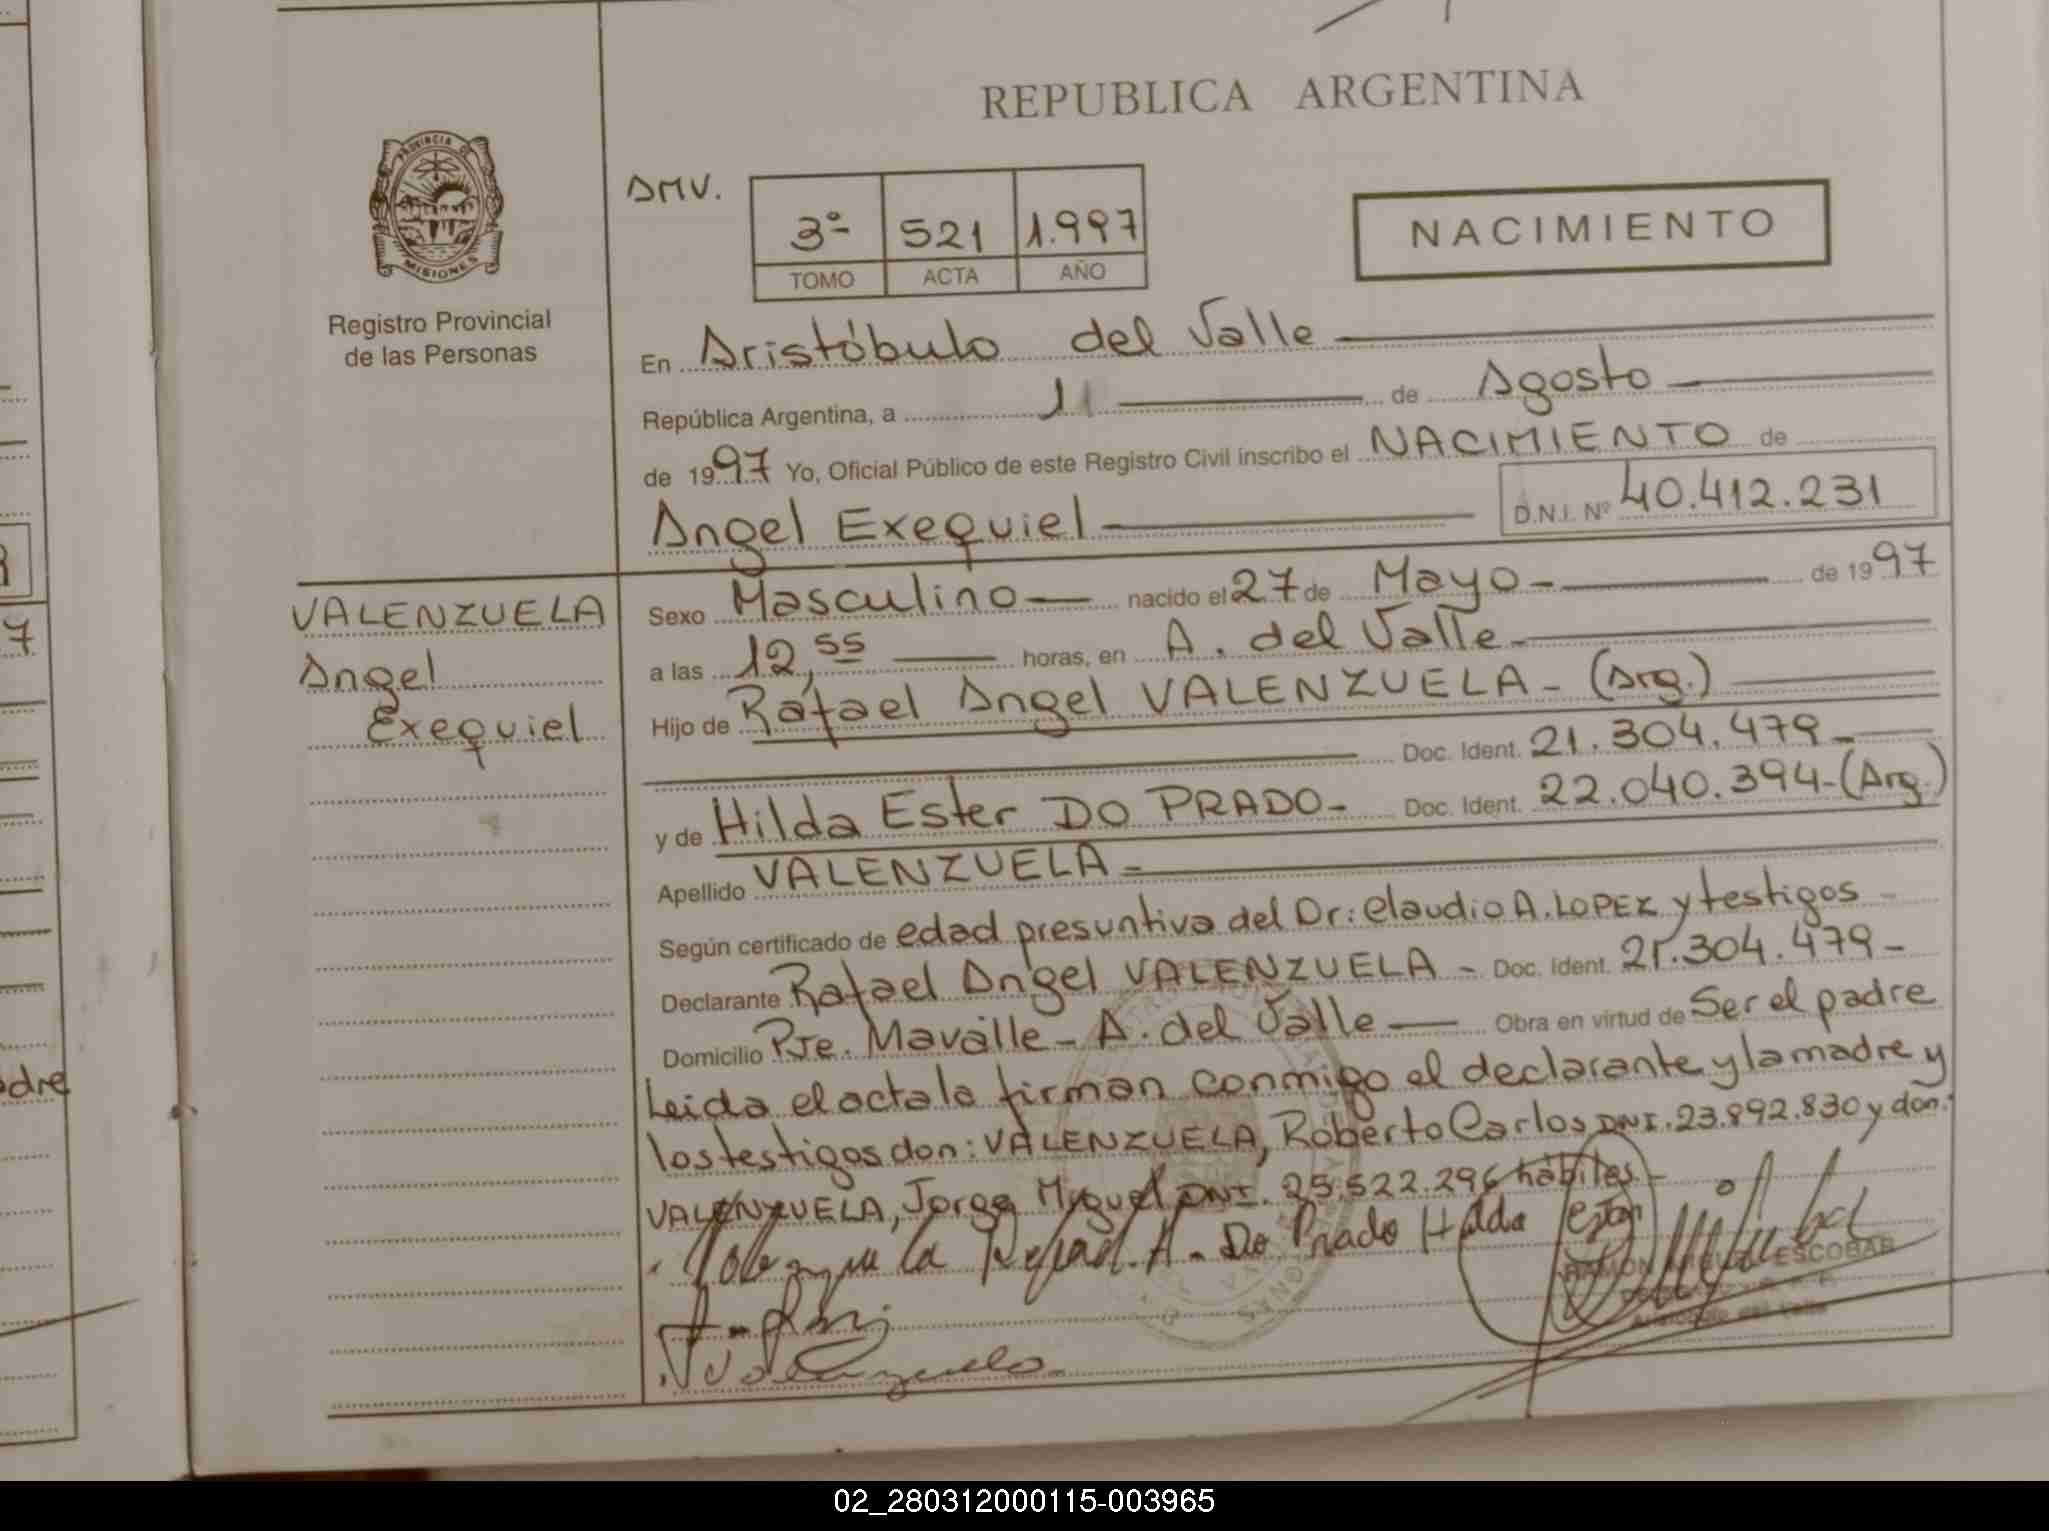 REPUBLICA ARGENTINA
PROVINCIA DE MISIONES
Registro Provincial
de las Personas
AMV.
3º 521 1.997
TOMO ACTA AÑO
NACIMIENTO
En Aristóbulo del Valle
República Argentina, a 11 de Agosto
de 1997 Yo, Oficial Público de este Registro Civil inscribo el NACIMIENTO de
Angel Exequiel D.N.I. Nº 40.412.231
VALENZUELA
Angel
Exequiel
Sexo Masculino nacido el 27 de Mayo de 1997
a las 12,55 horas, en A. del Valle
Hijo de Rafael Angel VALENZUELA - (Arg.)
Doc. Ident. 21.304.479
y de Hilda Ester DO PRADO - Doc. Ident. 22.040.394 - (Arg.)
Apellido VALENZUELA
Según certificado de edad presuntiva del Dr: Claudio A. LOPEZ y testigos
Declarante Rafael Angel VALENZUELA - Doc. Ident. 21.304.479
Domicilio Pje. Mavalle - A. del Valle Obra en virtud de Ser el padre
Leida el acta la firman conmigo el declarante y la madre y
los testigos don: VALENZUELA, Roberto Carlos DNI. 23.892.830 y don:
VALENZUELA, Jorge Miguel DNI. 25.522.296 hábiles
Do Prado Hilda Ester
RAMON MIGUEL ESCOBAR
Aristóbulo del Valle
adre
02_280312000115-003965